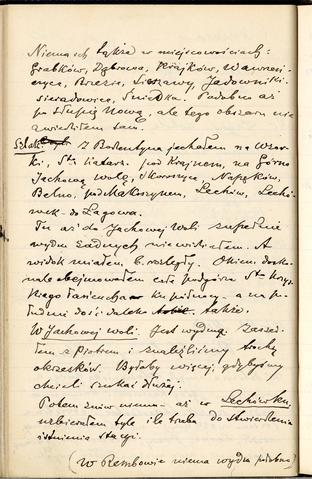 Niema ich także w miejscowościach:
Grabków, Dąbrowa, Krajków, Wawrzeń-
czyce, Brzezie, Sieszawy, Jadowniki,
Sieradowice, Śniadka. Podobno aż
po Słupię Nową, ale tego obszaru nie
zwiedziłem sam.
Szlak Z Bodzentyna jechałem na Wzor-
ki, Stą Katarz. pod Krajnem, na Górno
Jachową Wolę, Skorzeszyce, Napęków,
Belno, pod Makoszynem, Lechów, Lechó-
wek – do Łagowa.
Tu aż do Jachowej Woli zupełnie
wydm żadnych nie widziałem. A
widok miałem b. rozległy. Okiem dosko-
nale obejmowałem całe podgórze Sto Krzy-
skiego łańcucha ku północy – a na po-
łudniu dość daleko także.
W Jachowej Woli. jest wydma. Zaszed-
łem z Piotrem i znaleźliśmy trochę
okrzesków. Byłoby więcej, gdybyśmy
chcieli szukać dłużej.
Potem znów niema – aż w Lechówku,
uzbierałem tyle ile trzeba do stwierdzenia
istnienia stacji.
(W Rembowie niema wydm podobno)